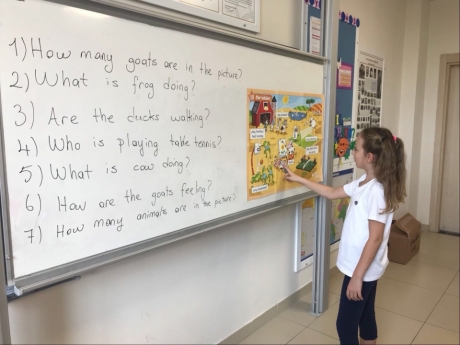 1) How many goats are in the picture?
2) What is frog doing?
3) Are the ducks walking?
4) Who is playing table tennis?
5) What is cow doing?
6) How are the goats feeling?
7) How many animals are in the picture?